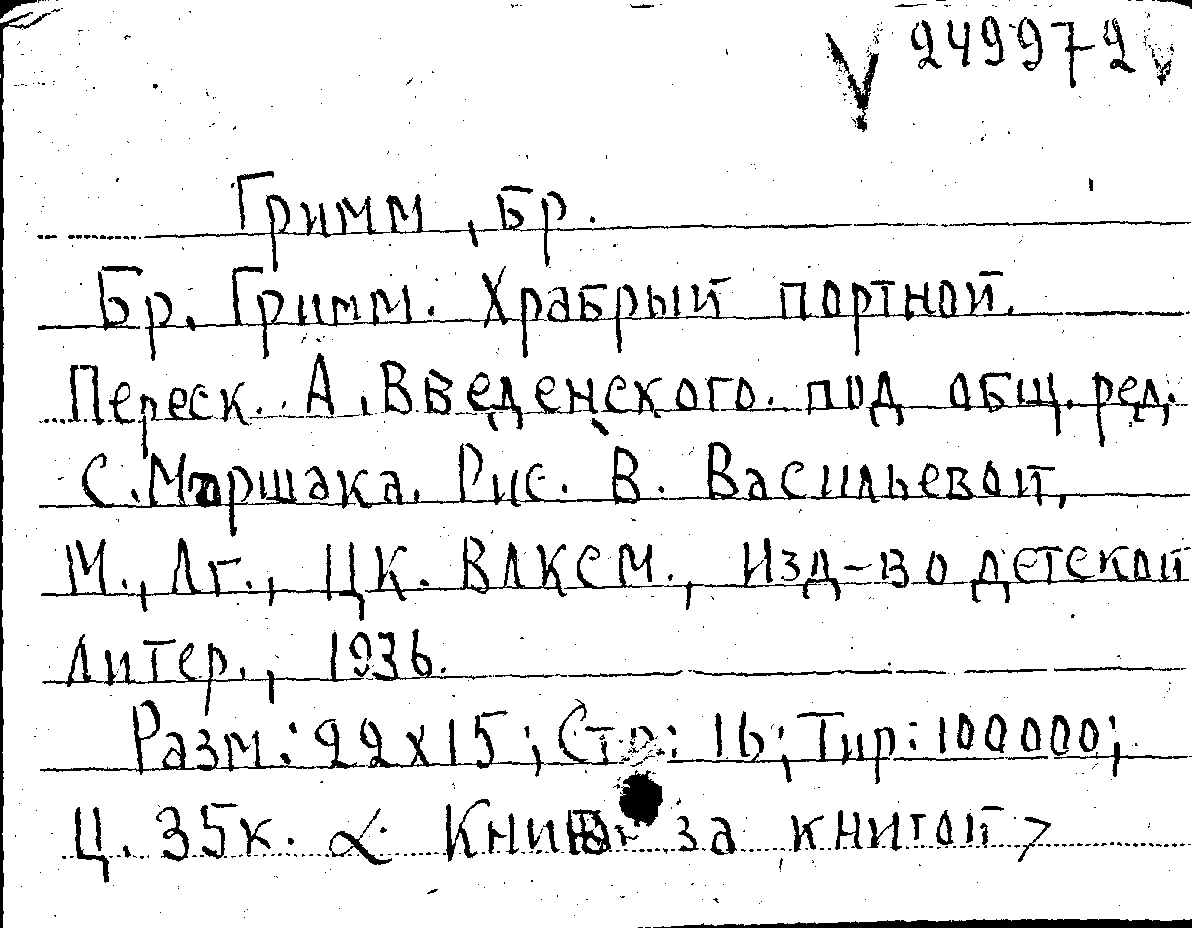 V 249972 V
Гримм, Бр.
Бр. Гримм. Храбрый портной.
Переск. А. Введенского. под общ. ред.
С. Маршака. Рис. В. Васильевой,
М., Лг., ЦК. ВЛКСМ., Изд-во детской
литер., 1936.
Разм: 22х15; Стр: 16; Тир: 100000;
Ц. 35к. < Книга за книгой >